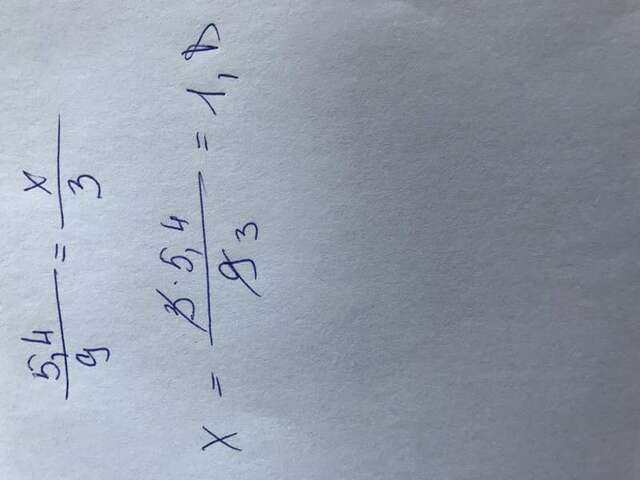 5,4/9 = x/3
x = 3·5,4/9 3 = 1,8